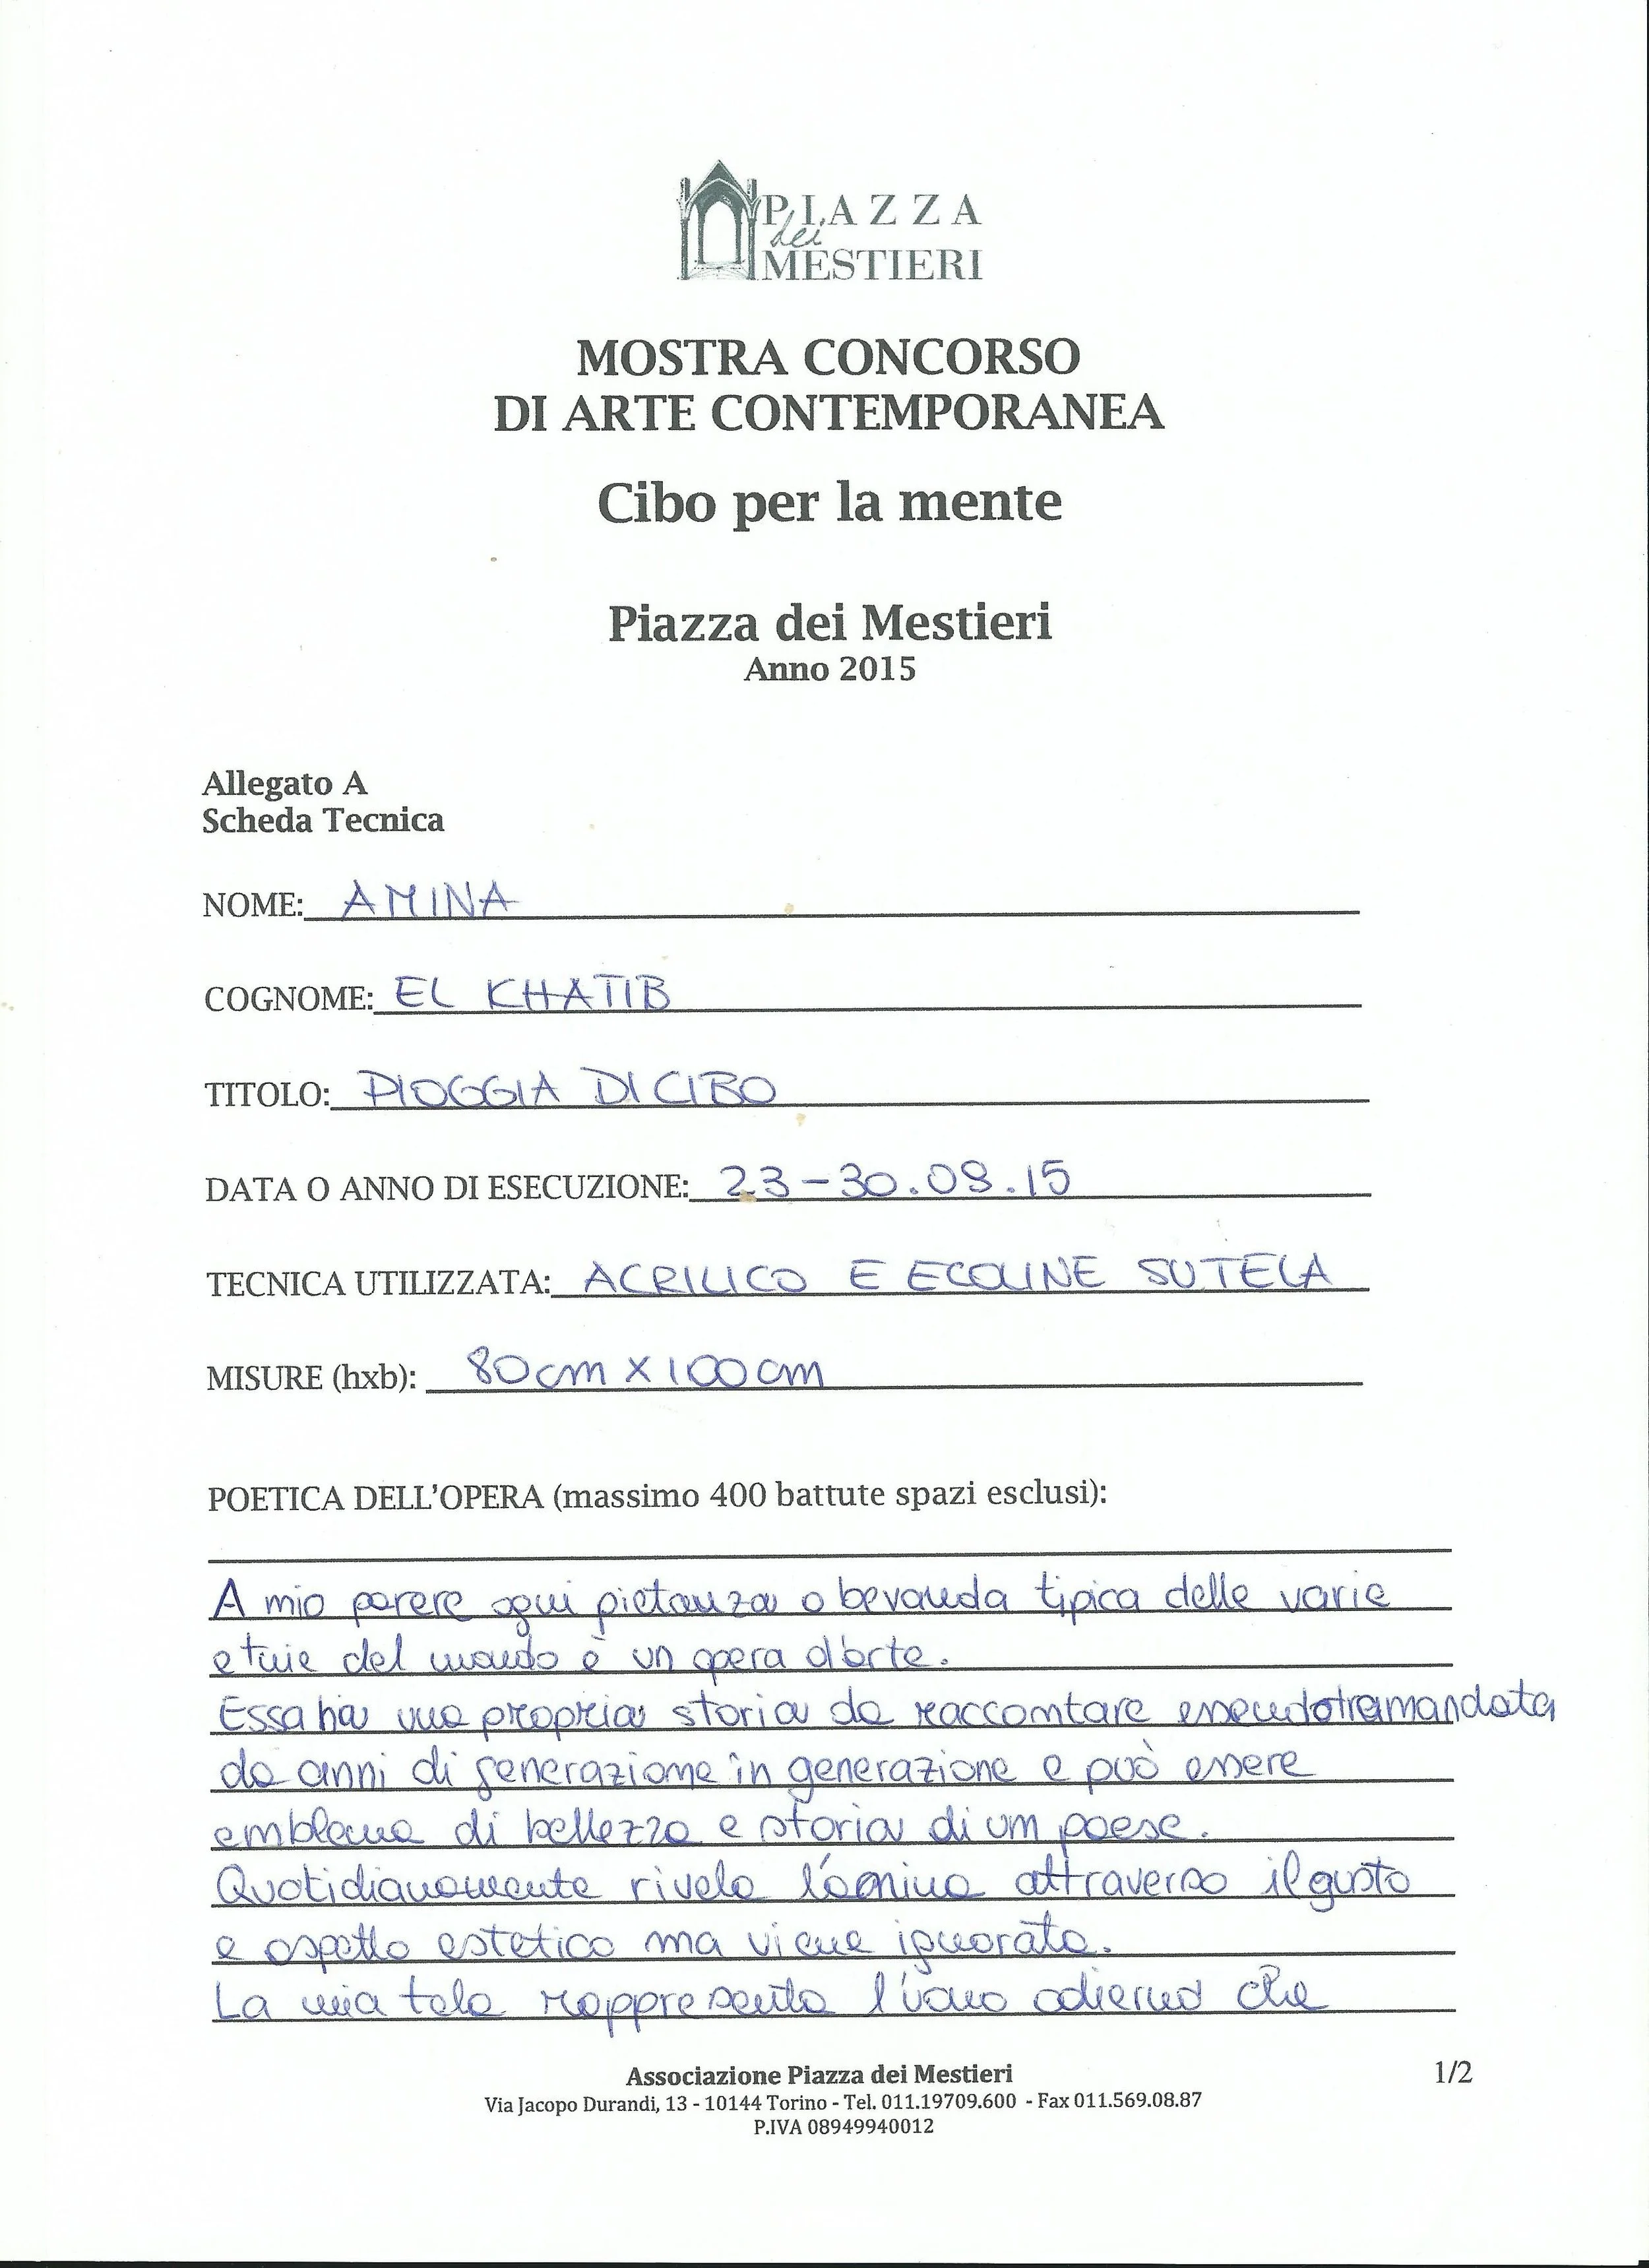 PIAZZA
dei
MESTIERI
MOSTRA CONCORSO
DI ARTE CONTEMPORANEA
Cibo per la mente
Piazza dei Mestieri
Anno 2015
Allegato A
Scheda Tecnica
NOME: AMINA
COGNOME: EL KHATIB
TITOLO: PIOGGIA DI CIBO
DATA O ANNO DI ESECUZIONE: 23-30.09.15
TECNICA UTILIZZATA: ACRILICO E ECOLINE SU TELA
MISURE (hxb): 80cm x 100cm
POETICA DELL'OPERA (massimo 400 battute spazi esclusi):
A mio parere ogni pietanza o bevanda tipica delle varie
etnie del mondo è un opera d'arte.
Essa ha una propria storia da raccontare essendo tramandata
da anni di generazione in generazione e può essere
emblema di bellezza e storia di un paese.
Quotidianamente rivela l'anima attraverso il gusto
e aspetto estetico ma viene ignorata.
La mia tela rappresenta l'uomo odierno che
Associazione Piazza dei Mestieri
1/2
Via Jacopo Durandi, 13 - 10144 Torino - Tel. 011.19709.600 - Fax 011.569.08.87
P.IVA 08949940012